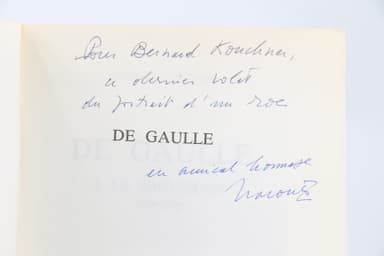 Pour Bernard Kouchner,
ce dernier volet
du portrait d'un roc
DE GAULLE
en amical hommage